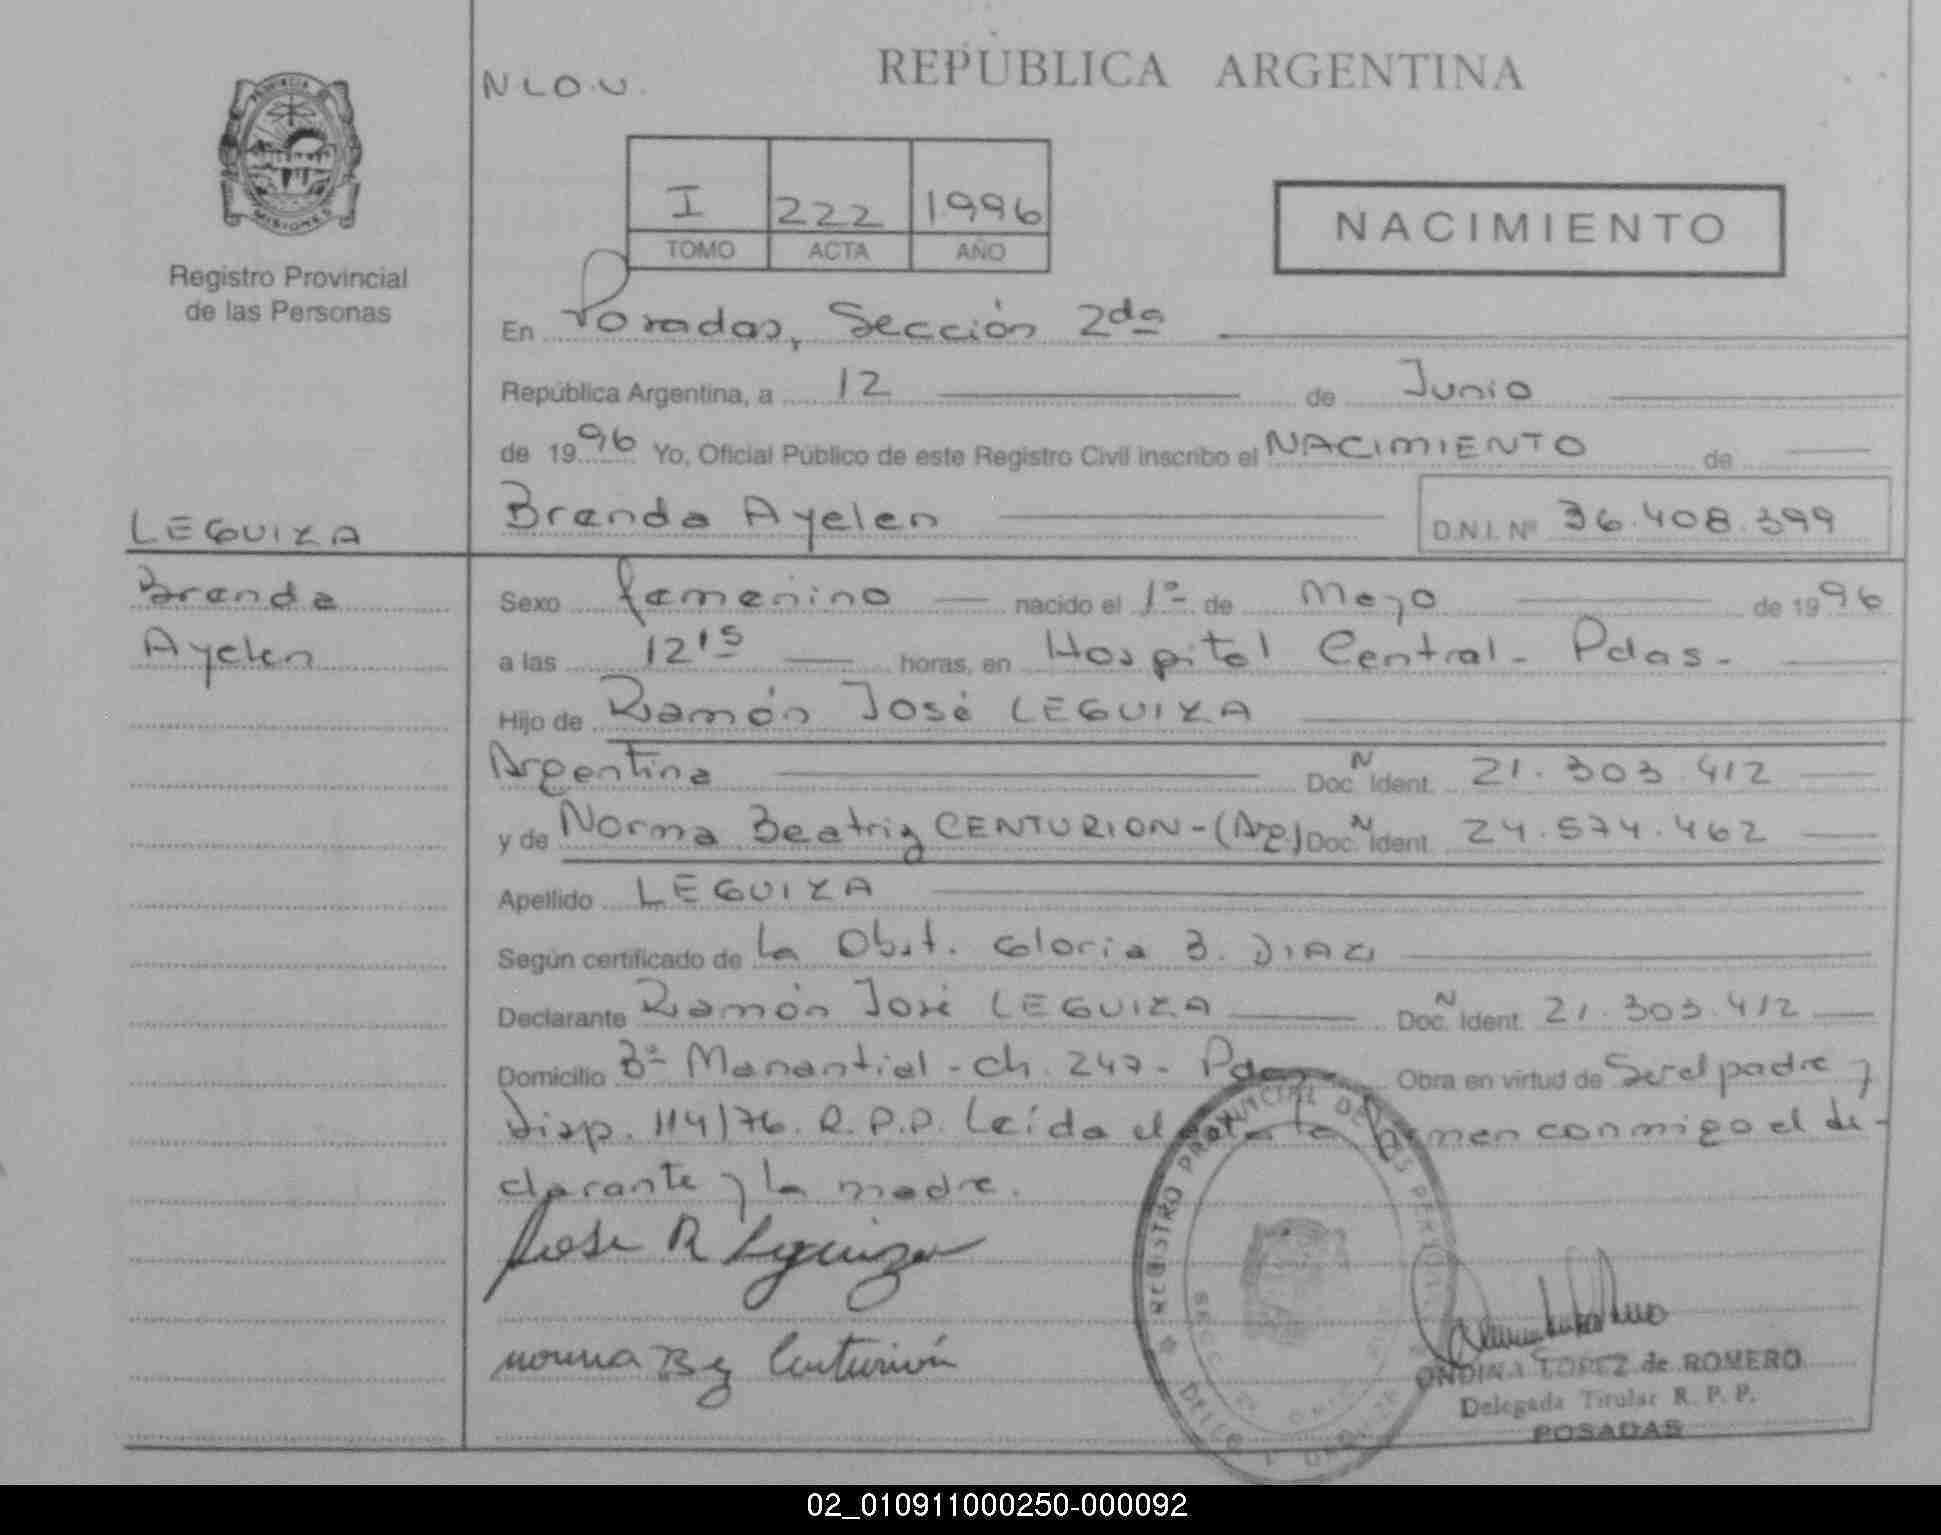 REPÚBLICA ARGENTINA
N L O . U .
PROVINCIA
MISIONES
Registro Provincial
de las Personas
I 222 1996
TOMO ACTA AÑO
NACIMIENTO
En Posadas, Sección 2da
República Argentina, a 12 de Junio
de 1996 Yo, Oficial Público de este Registro Civil inscribo el NACIMIENTO de
Brenda Ayelen D.N.I. Nº 36.408.399
LEGUIZA
Brenda
Ayelen
Sexo femenino nacido el 1º de Mayo de 1996
a las 12 15 horas, en Hospital Central - Pdas -
Hijo de Ramón José LEGUIZA
Argentina Doc. N Ident. 21.303.412
y de Norma Beatriz CENTURION - (Arg) Doc. N Ident. 24.574.462
Apellido LEGUIZA
Según certificado de la Obst. Gloria B. DIAZ
Declarante Ramón José LEGUIZA Doc. N Ident. 21.303.412
Domicilio Bº Manantial - Ch. 247 - Pdas Obra en virtud de Ser el padre y
Disp. 114/76. R.P.P. Leída el acta la firman conmigo el de-
clarante y la madre.
Jose R Leguiza
norma B z Centurión
REGISTRO PROVINCIAL DE LAS PERSONAS
ONDINA LOPEZ de ROMERO
Delegada Titular R. P. P.
POSADAS
02_010911000250-000092